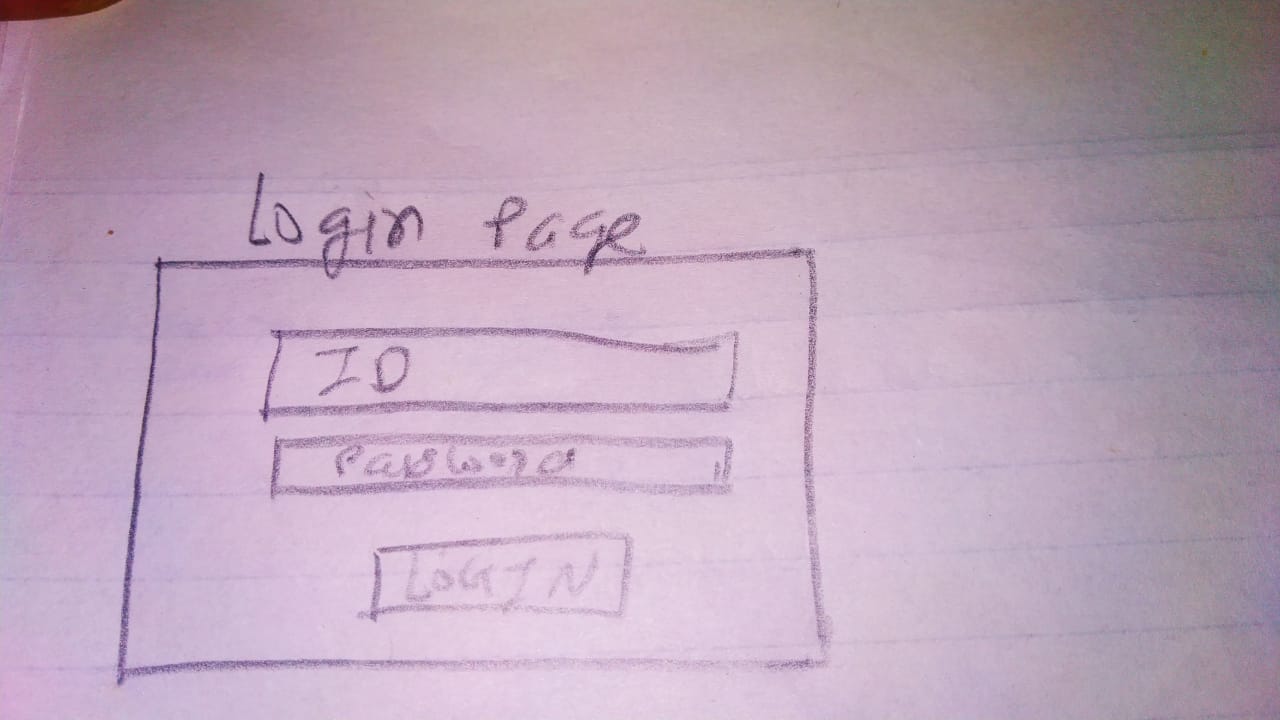 Login Page
ID
Password
LOGIN